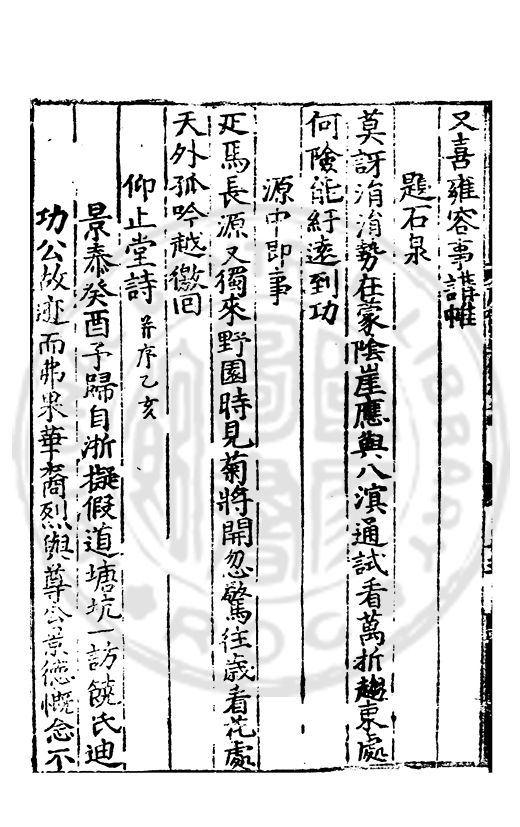 又喜雍容事講帷
題石泉
莫訝涓涓勢在蒙陰崖應與八濵通試看萬折趨東處
何險能紆逺到功
源中即事
疋馬長源又獨來野園時見菊將開忽驚往歳看花處
天外孤吟越徼囘
仰止堂詩 并序乙亥
景泰癸酉予歸自浙擬假道塘坑一訪饒氏迪
功公故迹而弗果華裔烈與尊公景德慨念不